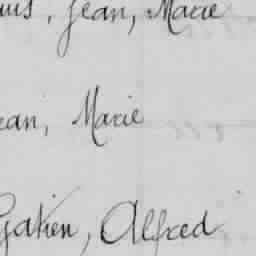 Jean, Marie
Jean, Marie
Gatien, Alfred